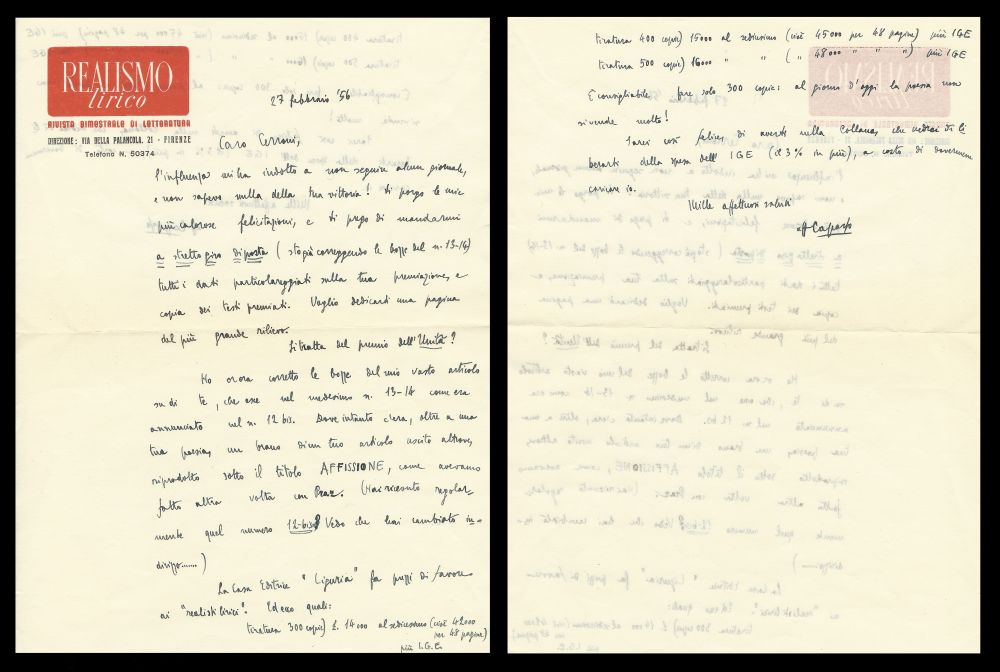 REALISMO
lirico
RIVISTA BIMESTRALE DI LETTERATURA
DIREZIONE: VIA DELLA PALANCOLA, 21 - FIRENZE
Telefono N. 50374
27 febbraio '56
Caro Cerroni,
l'influenza mi ha indotto a non seguire alcun giornale,
e non sapevo nulla della tua vittoria! Ti porgo le mie
più calorose felicitazioni, e ti prego di mandarmi
a stretto giro di posta (sto già correggendo le bozze del n. 13-14)
tutti i dati particolareggiati sulla tua premiazione, e
copia dei testi premiati. Voglio dedicarti una pagina
del più grande rilievo.
Si tratta del premio dell'Unità?
Ho or ora corretto le bozze del mio vasto articolo
su di te, che esce nel medesimo n. 13-14 come era
annunciato nel n. 12 bis. Dove intanto c'era, oltre a una
tua poesia, un brano di un tuo articolo uscito altrove,
riprodotto sotto il titolo AFFISSIONE, come avevamo
fatto altra volta con Praz. (Hai ricevuto regolar-
mente quel numero 12-bis? Vedo che hai cambiato in-
dirizzo.......)
La Casa Editrice "Liguria" fa prezzi di favore
ai "realisti lirici". Ed ecco quali:
tiratura 300 copie) £. 14000 al sedicesimo (cioè 42000
per 48 pagine)
più I.G.E.
tiratura 400 copie) 15000 al sedicesimo (cioè 45000 per 48 pagine) più IGE
tiratura 500 copie) 16000 " " ( " 48000 " " " ) più IGE
È consigliabile fare solo 300 copie: al giorno d'oggi la poesia non
si vende molto!
Sarei così felice di averti nella Collana, che vedrei di li
berarti della spesa dell'IGE (il 3% in più), a costo di dovermene
caricare io.
Mille affettuosi saluti
A Capasso